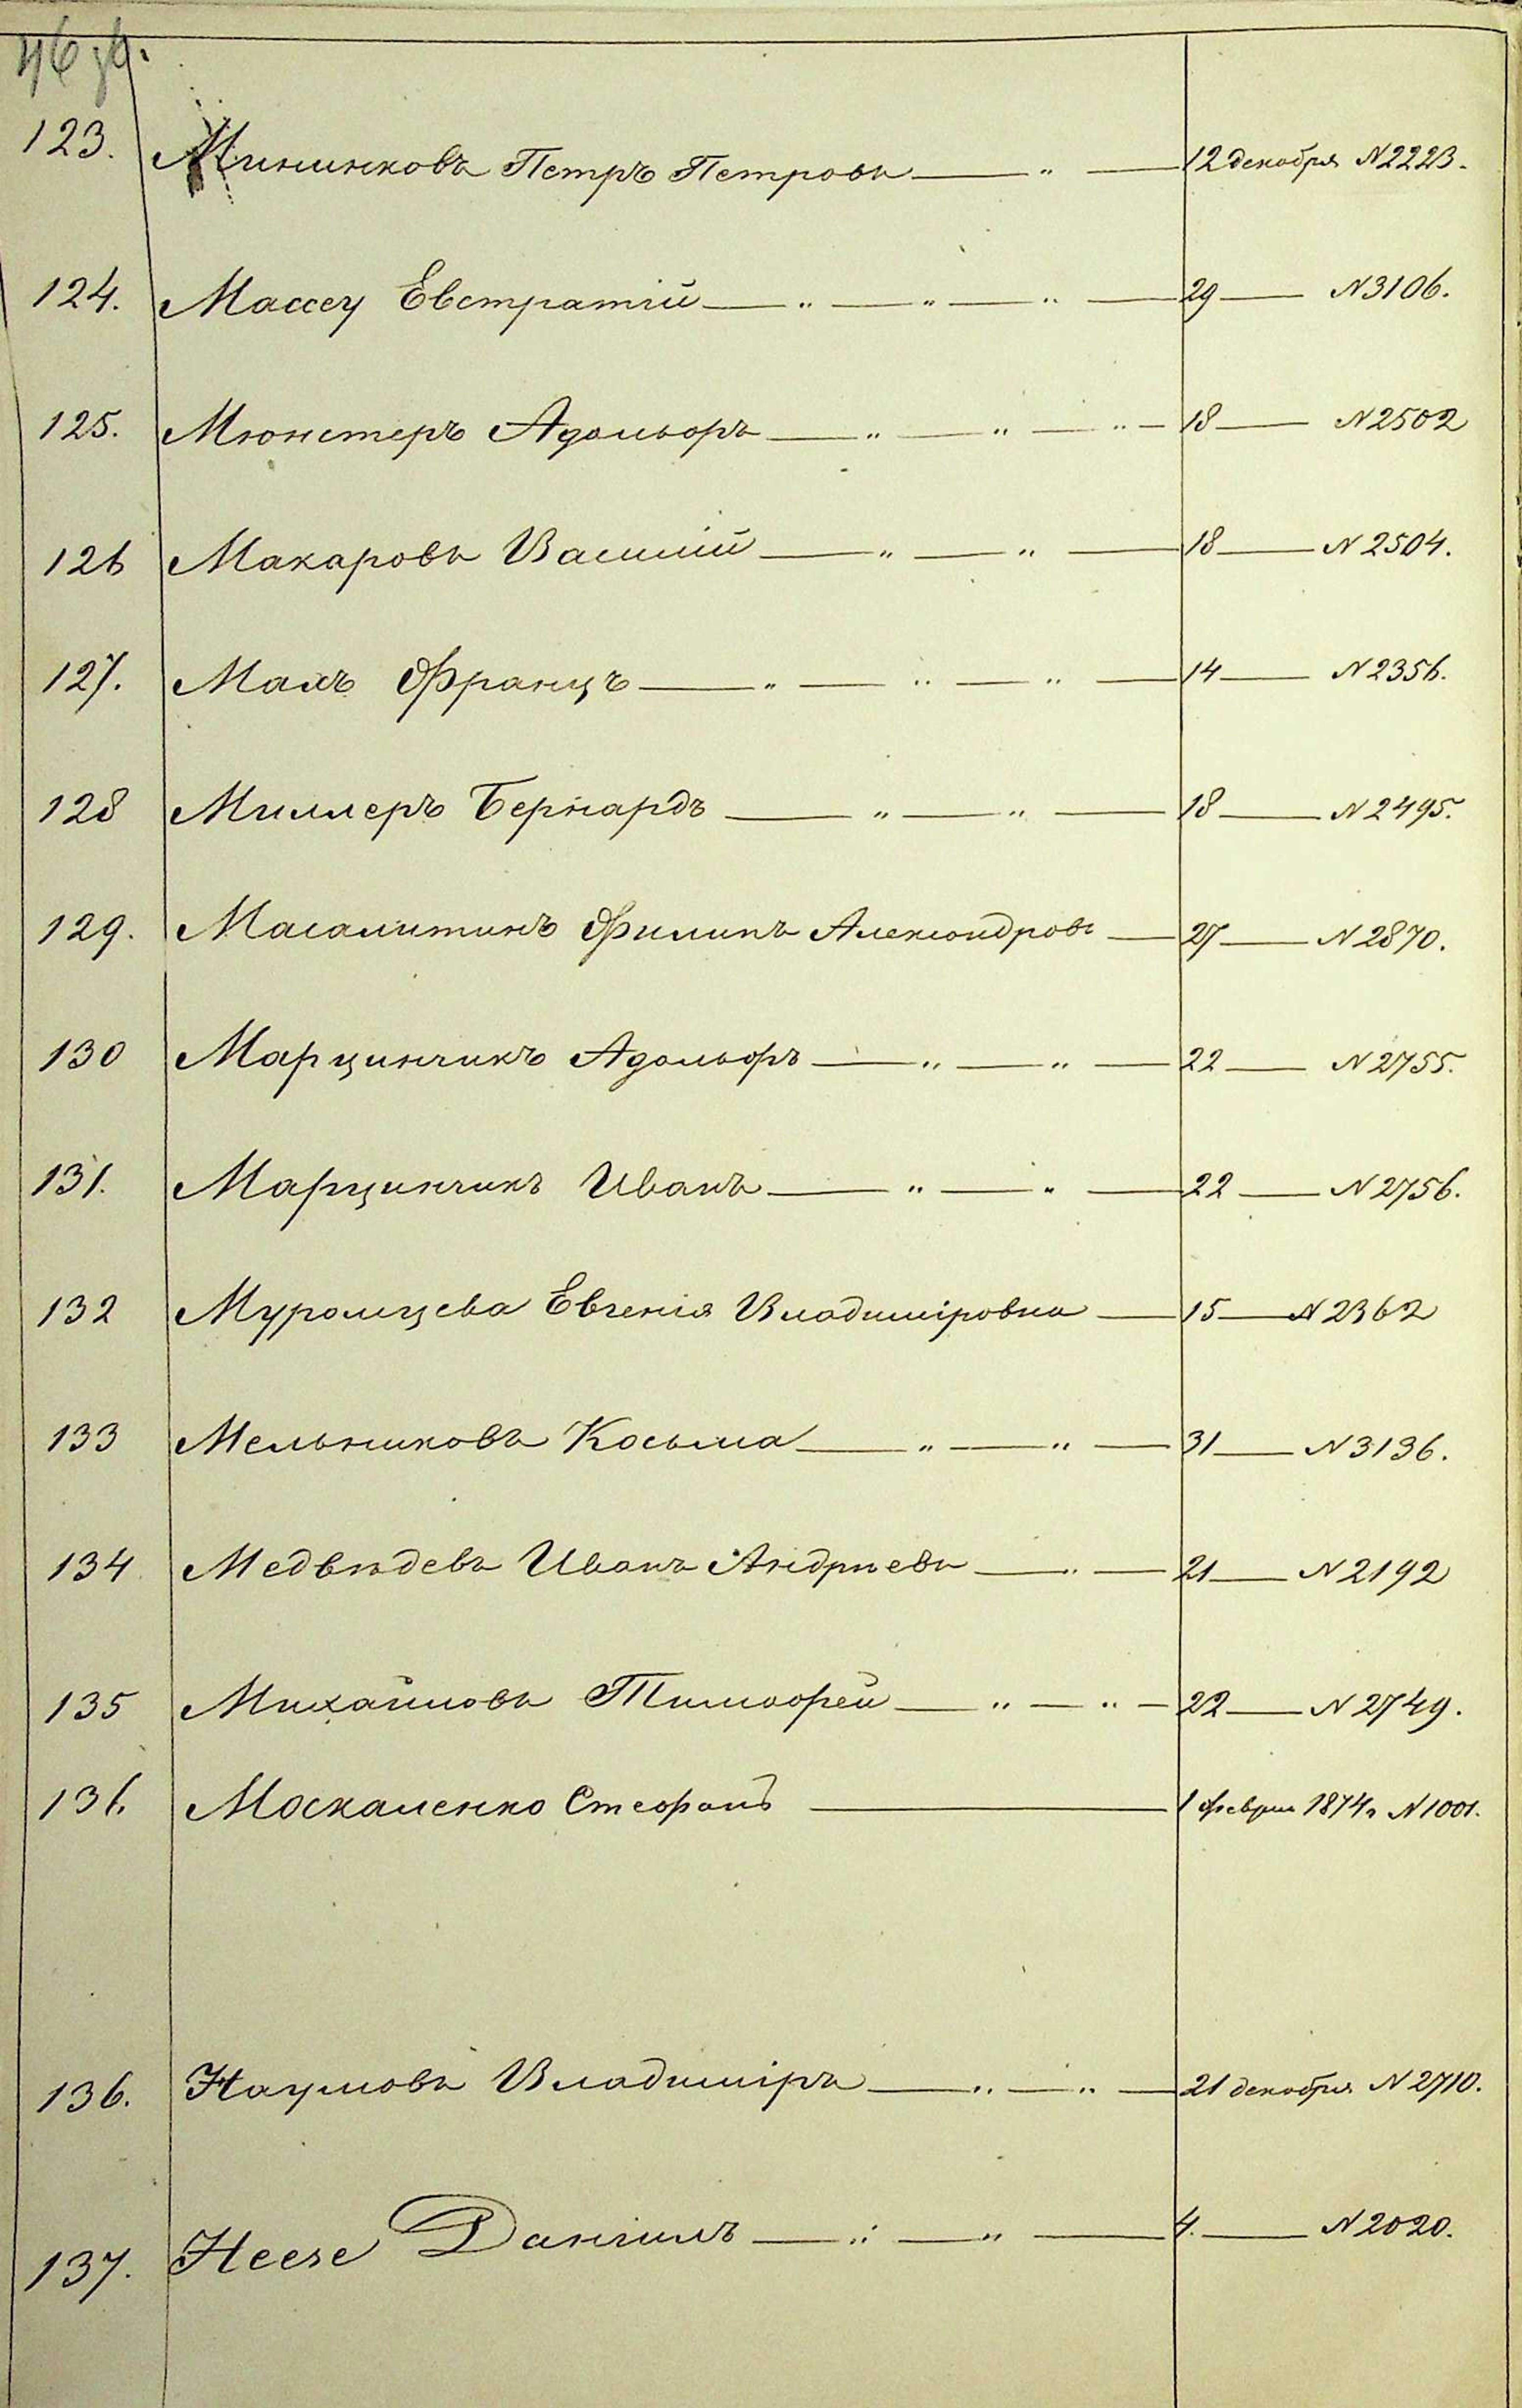 46 об.
123. Мининковъ Петръ Петровъ — " — 12 декабря N 2223.
124. Массеу Евстратій — " — " — " — 29 — N 3106.
125. Мюнстеръ Адольфъ — " — " — " — 18 — N 2502
126 Макаровъ Василій — " — " — 18 — N 2504.
127. Махъ Францъ — " — " — " — 14 — N 2356.
128 Миллеръ Бернардъ — " — " — 18 — N 2495.
129. Масалитинъ Филипъ Александровъ — 27 — N 2870.
130 Марцинчикъ Адольфъ — " — " — 22 — N 2755.
131. Марцинчикъ Иванъ — " — " — 22 — N 2756.
132 Муромцева Евгенія Владиміровна — 15 — N 2362
133 Мельниковъ Косьма — " — " — 31 — N 3136.
134 Медвѣдевъ Иванъ Андрѣевъ — " — 21 — N 2192
135 Михайловъ Тимофей — " — " — 22 — N 2749.
136. Москаленко Стефанъ — 1 феврал 1874 г N 1001.
136. Наумовъ Владиміръ — " — " — 21 декабря N 2710.
137. Неезе Даніилъ — " — " — 4. — N 2020.